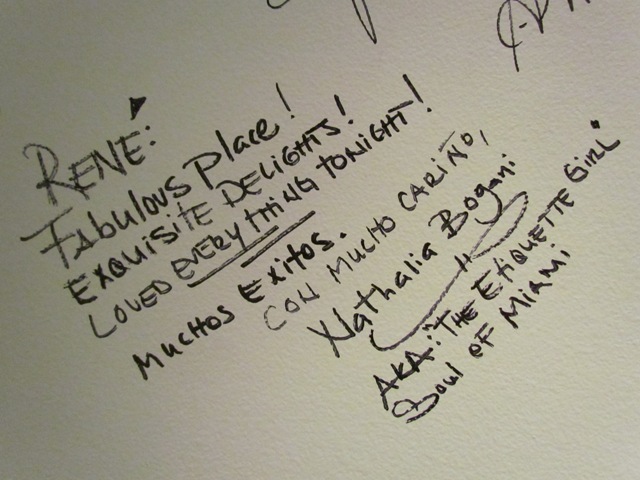 RENÉ:
Fabulous Place!
EXQUISITE DELIGHTS!
LOVED EVERYTHING TONIGHT!
MUCHOS EXITOS.
CON MUCHO CARIÑO,
Nathalia Bogani
AKA: "THE ETIQUETTE GIRL"
OF MIAMI